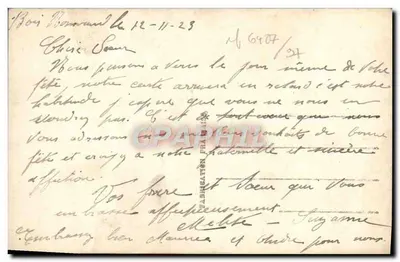 Bois Normand le 12-11-23
M 6487/97
Chère Sœur
Nous pensons a vous le jour même de votre
fête, notre carte arrivera en retard c'est notre
habitude j'espère que vous ne nous en
voudrez pas. C'est de
vous adressons nos souhaits de bonne
fête et croyez a notre fraternelle et sincère
affection.
Vos frère et sœur qui vous
embrasse affectueusement
Suzanne
Embrassez bien Maurice et pour nous.
FABRICATION FRANÇAISE
CPARAMA